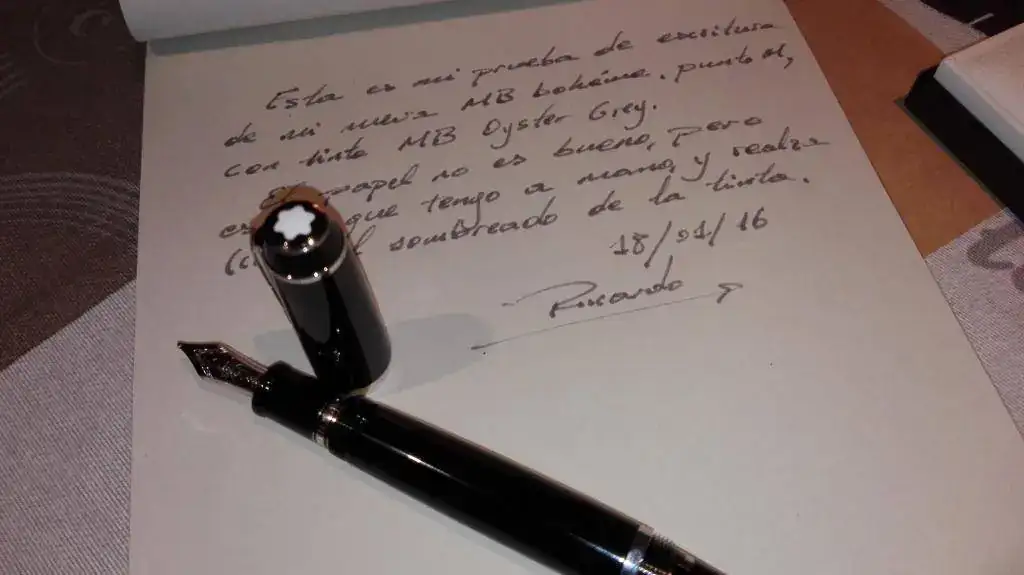 Esta es mi prueba de escritura
de mi nueva MB bohéme, punto M,
con tinta MB Oyster Grey.
El papel no es bueno, pero
que tengo a mano, y realza
sombreado de la tinta.
18/01/16
Ricardo